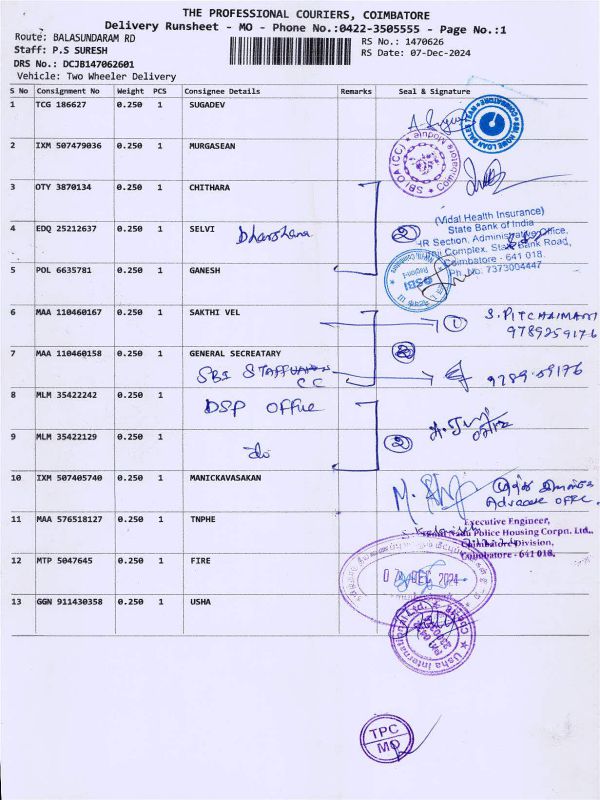 THE PROFESSIONAL COURIERS, COIMBATORE
Delivery Runsheet - MO - Phone No.:0422-3505555 - Page No.:1
Route: BALASUNDARAM RD
RS No.: 1470626
Staff: P.S SURESH
RS Date: 07-Dec-2024
DRS No.: DCJB147062601
Vehicle: Two Wheeler Delivery
S No Consignment No Weight PCS Consignee Details Remarks Seal & Signature
1 TCG 186627 0.250 1 SUGADEV
SBI HOME LOAN SALES
COIMBATORE
2 IXM 507479036 0.250 1 MURGASEAN
SBI OA (CC) ★ Coimbatore Module ★
3 OTY 3870134 0.250 1 CHITHARA
(Vidal Health Insurance)
State Bank of India
HR Section, Administrative Office,
SBI Complex, State Bank Road,
Coimbatore - 641 018.
Ph. No: 7373004447
4 EDQ 25212637 0.250 1 SELVI
Dharshana
2
5 POL 6635781 0.250 1 GANESH
SBI
6 MAA 110460167 0.250 1 SAKTHI VEL
1
S. PITCHAIMANI
9789259176
7 MAA 110460158 0.250 1 GENERAL SECREATARY
SBI STAFF
CC
8 MLM 35422242 0.250 1
DSP Office
9 MLM 35422129 0.250 1
do
2
10 IXM 507405740 0.250 1 MANICKAVASAKAN
Advocate
11 MAA 576518127 0.250 1 TNPHE
Executive Engineer,
Tamil Nadu Police Housing Corpn. Ltd.,
Coimbatore Division,
Coimbatore - 641 018.
12 MTP 5047645 0.250 1 FIRE
07 DEC 2024
13 GGN 911430358 0.250 1 USHA
Usha International Ltd.
TPC
MO